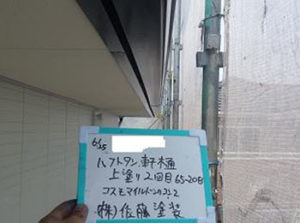 6/25
ハフトタン.軒樋
上塗り2回目65-20B
コスモマイルドシリコン2
(株)佐藤塗装